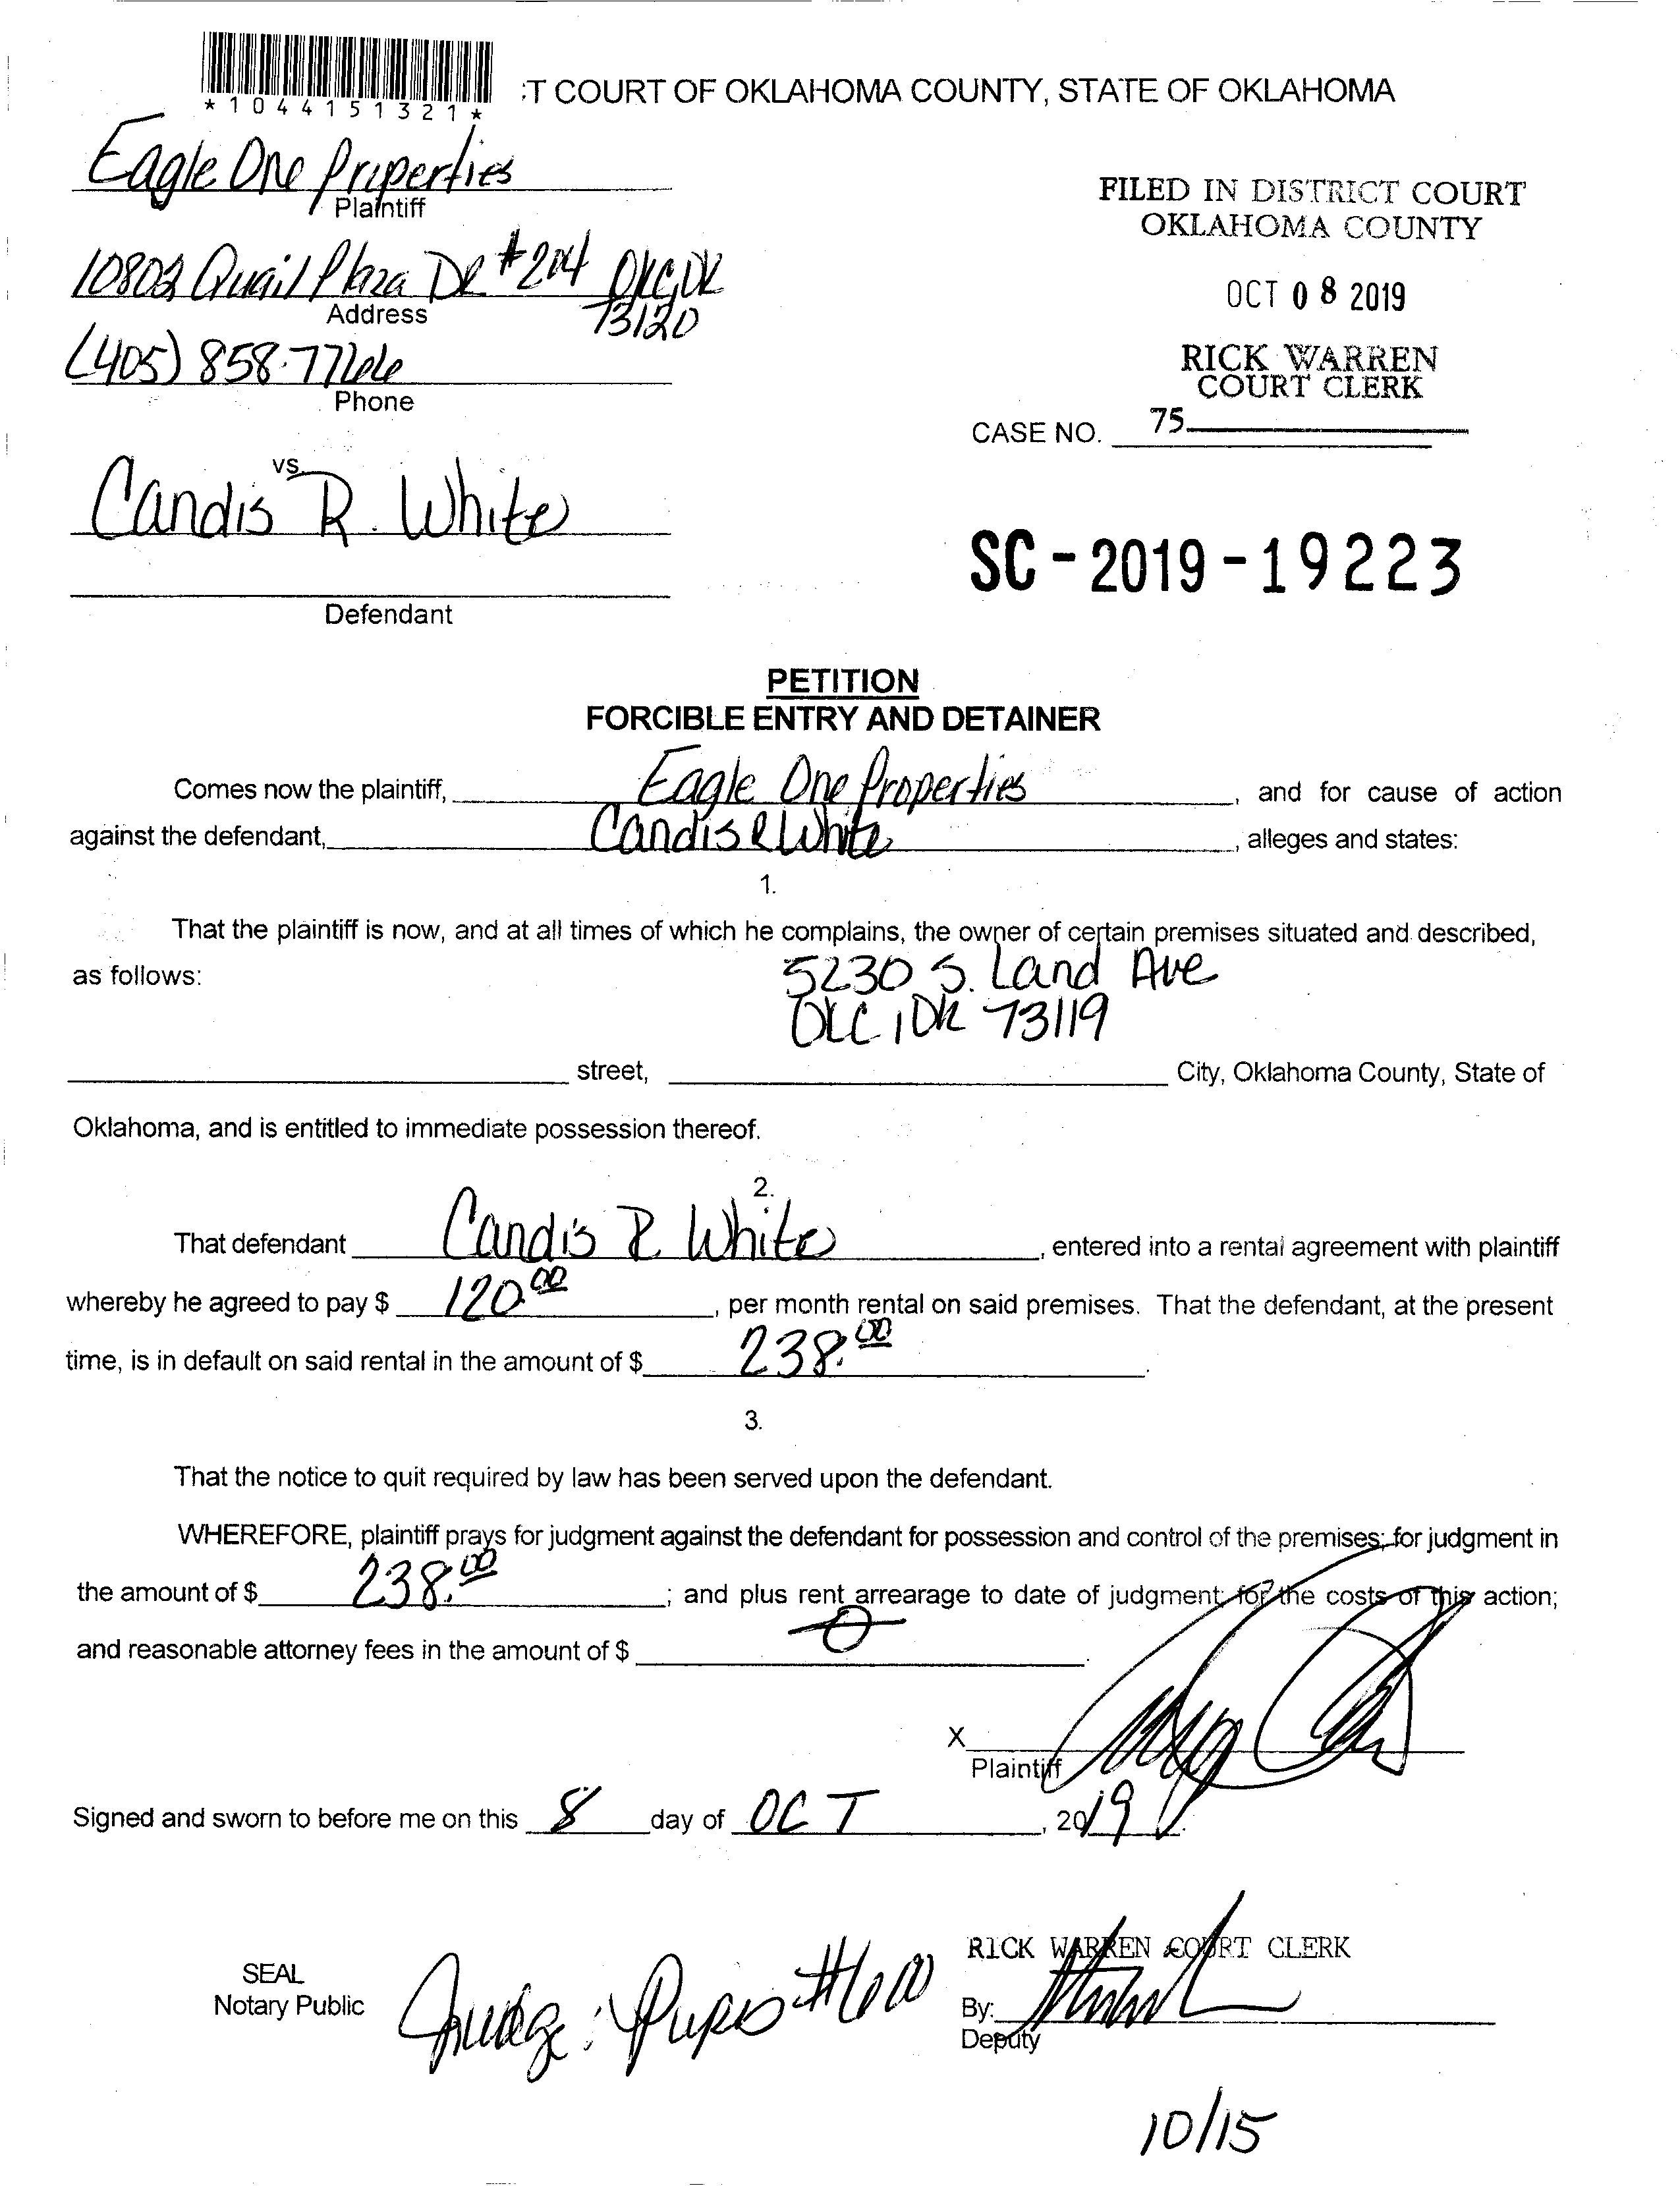 *1044151321*
:T COURT OF OKLAHOMA COUNTY, STATE OF OKLAHOMA
Eagle One Properties
Plaintiff
FILED IN DISTRICT COURT
OKLAHOMA COUNTY
10802 Quail Plaza Dr #204 OKC, OK
73120
Address
OCT 08 2019
(405) 858-7766
Phone
RICK WARREN
COURT CLERK
CASE NO. 75
vs.
Candis R. White
SC-2019-19223
Defendant
PETITION
FORCIBLE ENTRY AND DETAINER
Comes now the plaintiff, Eagle One Properties, and for cause of action
against the defendant, Candis R White, alleges and states:
1.
That the plaintiff is now, and at all times of which he complains, the owner of certain premises situated and described,
as follows: 5230 S. Land Ave
OKC, OK 73119
street, City, Oklahoma County, State of
Oklahoma, and is entitled to immediate possession thereof.
2.
That defendant Candis R White, entered into a rental agreement with plaintiff
whereby he agreed to pay $ 120.00, per month rental on said premises. That the defendant, at the present
time, is in default on said rental in the amount of $ 238.00.
3.
That the notice to quit required by law has been served upon the defendant.
WHEREFORE, plaintiff prays for judgment against the defendant for possession and control of the premises; for judgment in
the amount of $ 238.00; and plus rent arrearage to date of judgment; for the costs of this action;
and reasonable attorney fees in the amount of $ 0.
X
Plaintiff
Signed and sworn to before me on this 8 day of OCT, 2019.
RICK WARREN COURT CLERK
SEAL
Notary Public
Judge:
By:
Deputy
10/15